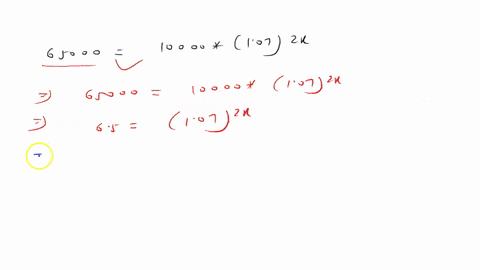 65000 = 10000* (1.07) 2x
⇒ 65000 = 10000* (1.07)^2x
⇒ 6.5 = (1.07)^2x